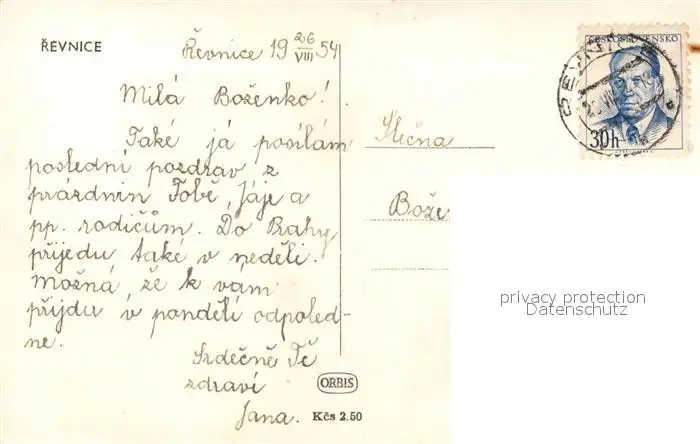 ŘEVNICE
Řevnice 19 26/VIII 54
Milá Boženko!
Také já posílám
poslední pozdrav z
prázdnin Tobě, Jáje a
pp. rodičům. Do Prahy
přijedu také v neděli.
Možná, že k vám
přijdu v pondělí odpoled-
ne.
Srdečně Tě
zdraví
Jana.
ORBIS
Kčs 2.50
Slečna
Bože
ČESKOSLOVENSKO
30h
privacy protection
Datenschutz